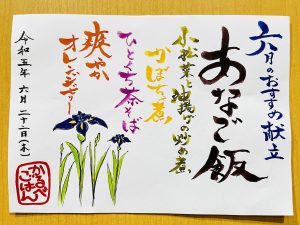 六月のおすすめ献立
あなご飯
小松菜と油揚げの炒め煮
かぼちゃ煮
ひとくち茶そば
爽やかオレンジゼリー
令和五年 六月二十二日(木)
かるべごはん